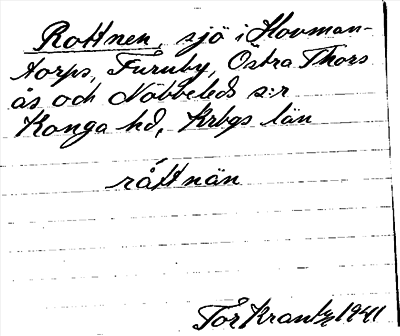 Rottnen, sjö i Hovman-
torps, Furuby, Östra Thors
ås och Nöbbeleds s:r
Konga hd, Krbgs län
råttnän
Tor Krantz 1941